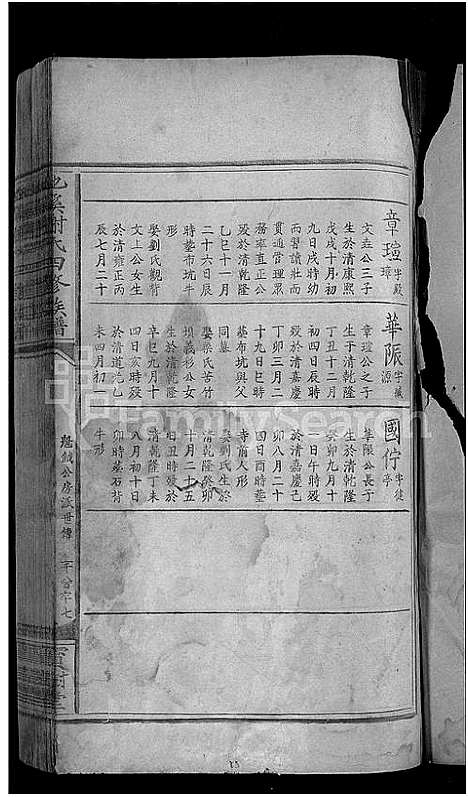 章瑄 字殿璋
文垚公三子
生於清康熙
戊戌十月初
九日戌時幼
而習讀壯而
貫通管理眾
務率直正公
歿於清乾隆
乙巳十一月
二十六日辰
時墊布坑牛
形
娶劉氏觀背
文上公女生
於清雍正丙
辰七月二十
華陙 字藏源
章瑄公之子
生于清乾隆
丁丑十二月
初四日辰時
歿於清嘉慶
丁卯三月二
十九日巳時
墓布坑與父
同墓
娶梁氏苦竹
坝義杉公女
生於清乾隆
辛巳九月十
四日亥時歿
於清道光乙
未四月初
國佇 字徒亭
華陙公長子
生於清乾隆
癸卯九月十
一日午時歿
於清嘉慶己
卯八月二十
四日酉時墊
寺前人形
娶劉氏生於
清乾隆癸卯
十月二十五
日丑時歿於
清乾隆丁未
八月初十日
卯時墓石背
牛形
謝氏四修族譜
公房派世傳
寶樹堂
FamilySearch